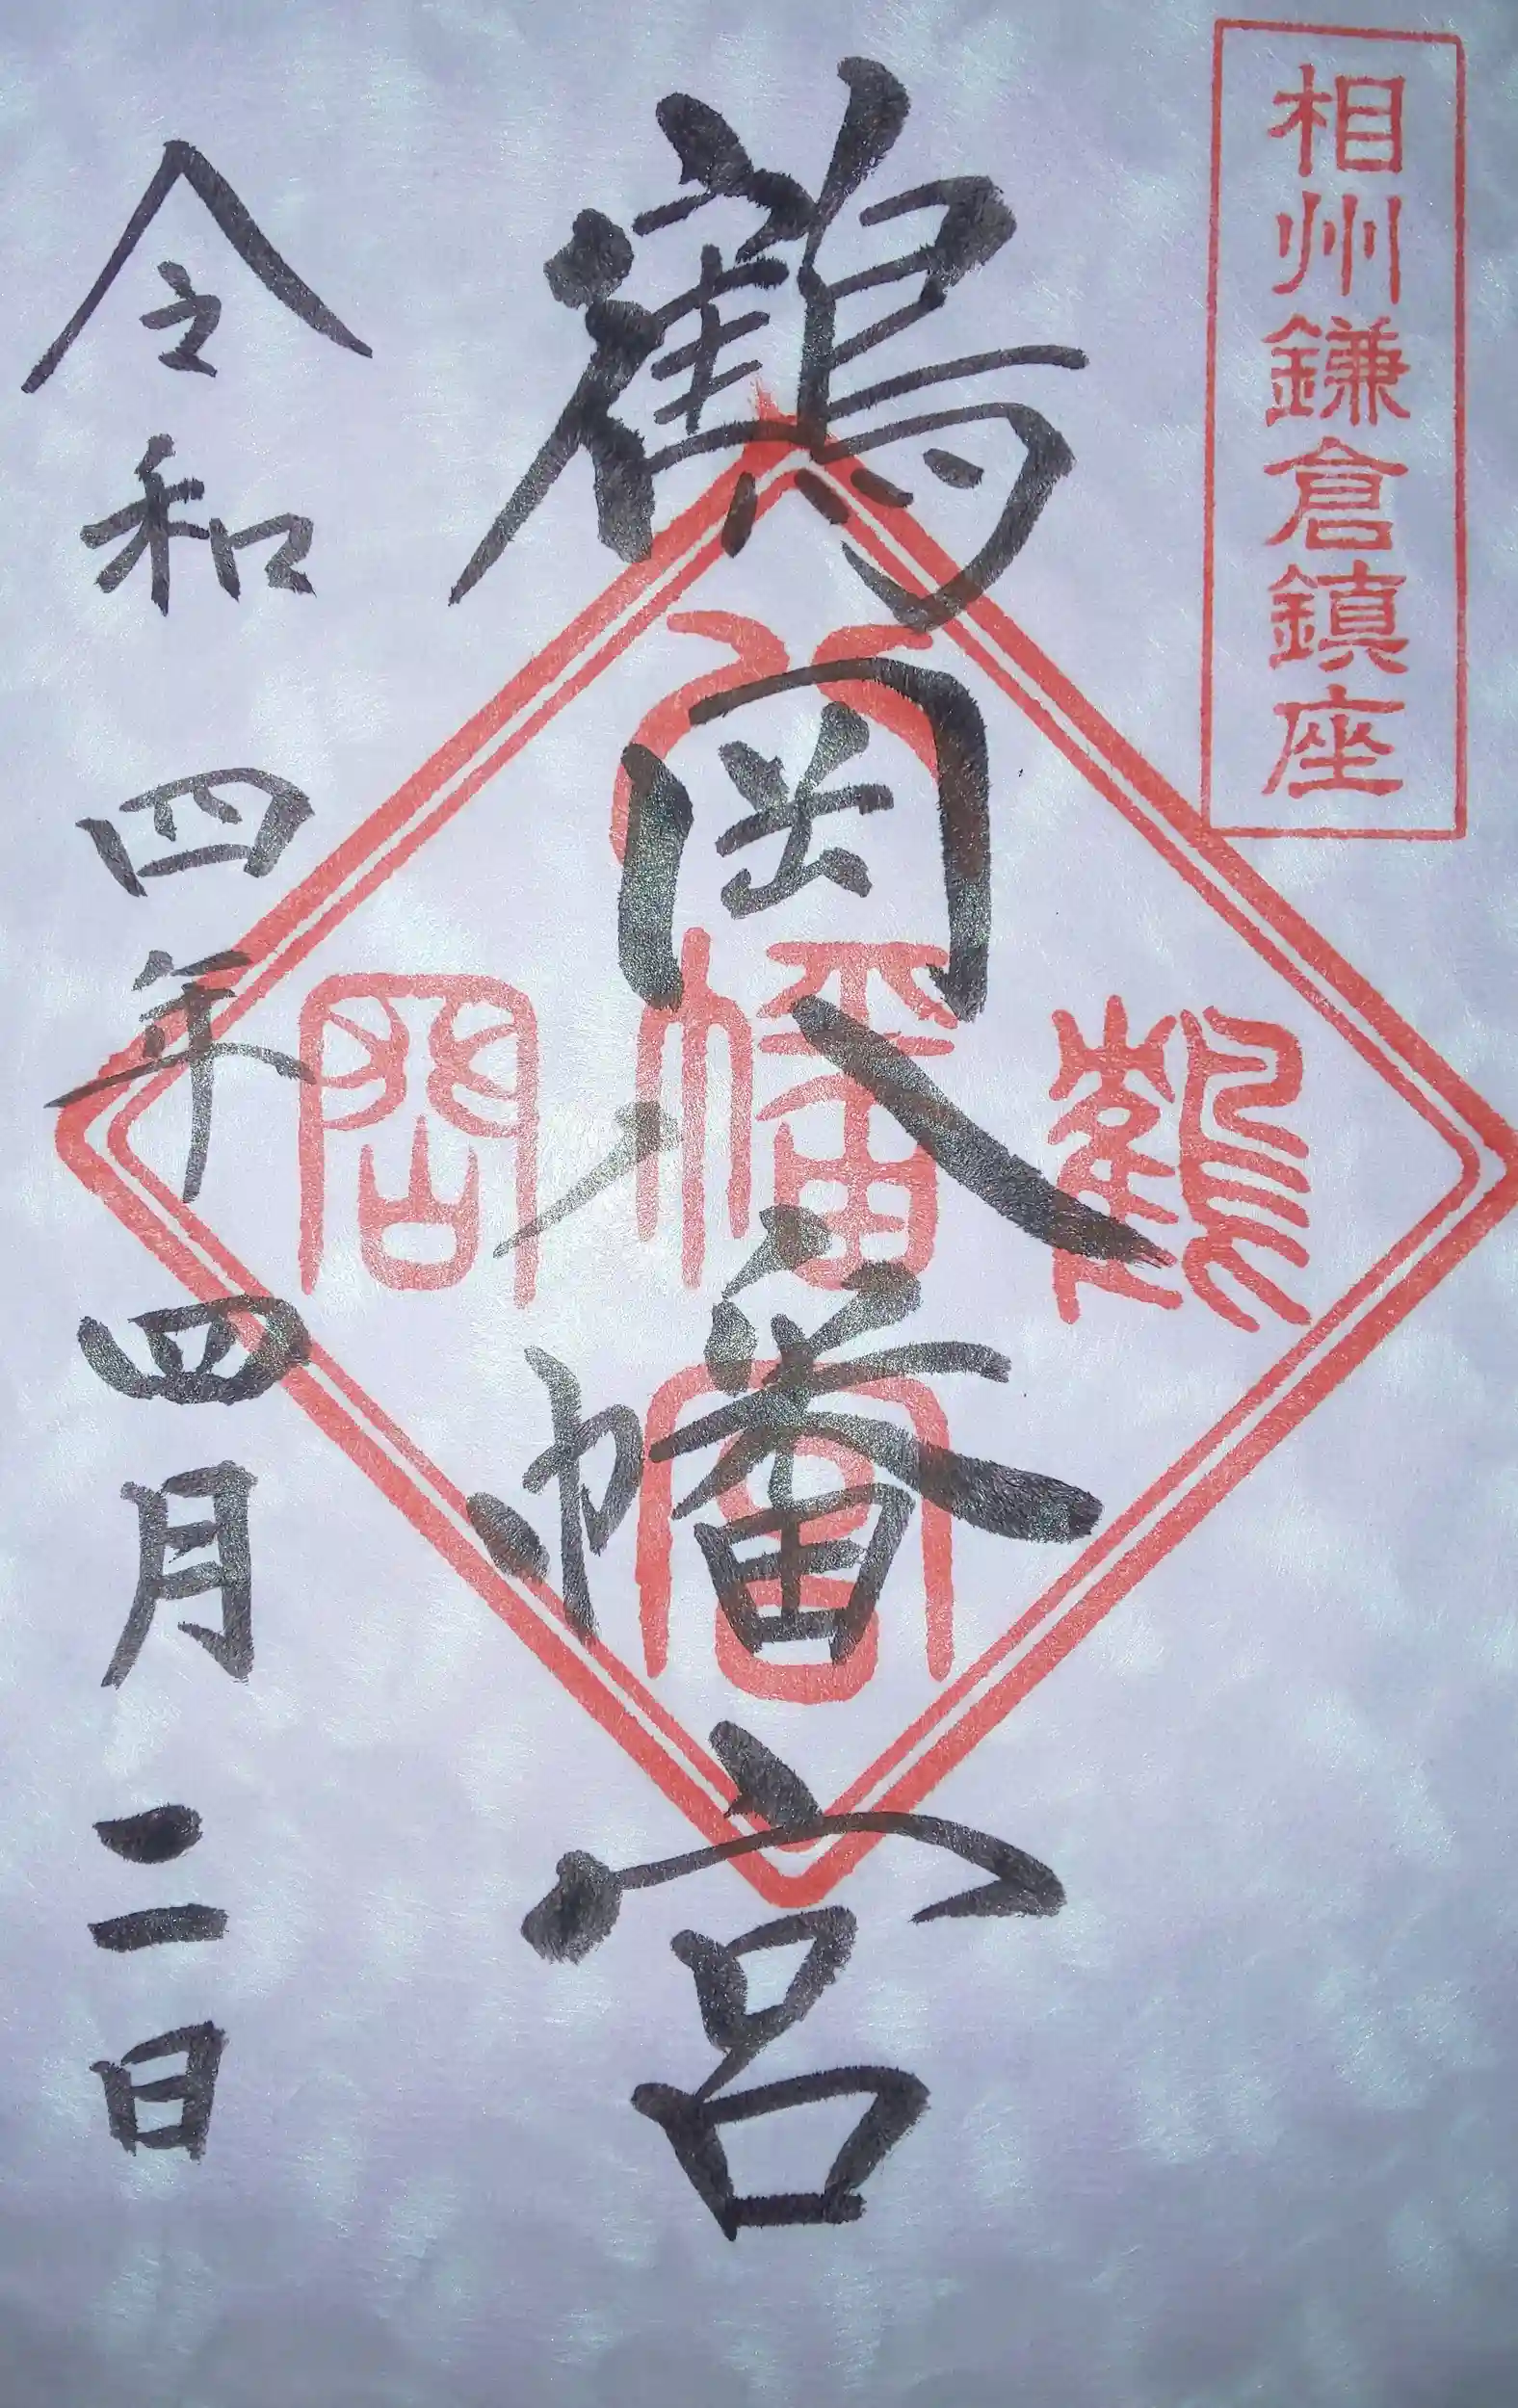 相州鎌倉鎮座
鶴岡八幡宮
八
鶴幡岡
宮
令和四年四月二日